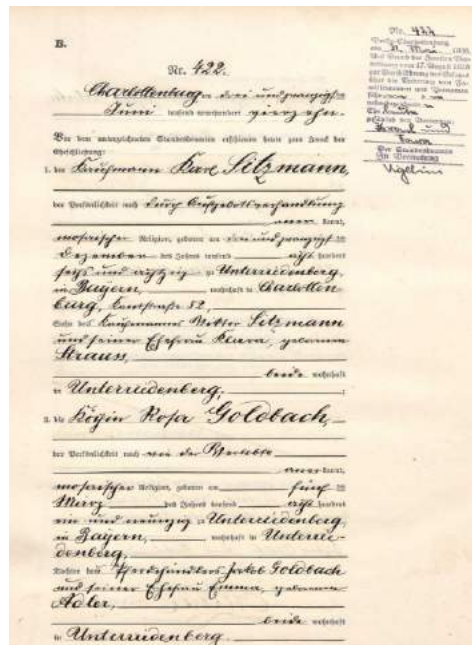 B.
Nr. 422.
Charlottenburg am drei und zwanzigsten
Juni tausend neunhundert vierzehn.
Vor dem unterzeichneten Standesbeamten erschienen heute zum Zweck der
Eheschließung:
1. der Kaufmann Karl Sitzmann,
der Persönlichkeit nach durch Aufgebotsverhandlung
aner kannt,
mosaischer Religion, geboren am drei und zwanzigsten
Dezember des Jahres tausend acht hundert
sechs und achtzig zu Unterriedenberg
in Bayern, wohnhaft in Charlotten-
burg, Kantstraße 52,
Sohn des Kaufmanns Viktor Sitzmann
und seiner Ehefrau Klara, geborenen
Strauss,
beide wohnhaft
in Unterriedenberg;
2. die Köchin Rosa Goldbach,
der Persönlichkeit nach von der Verlobte
aner kannt,
mosaischer Religion, geboren am fünf ten
März des Jahres tausend acht hundert
ein und neunzig zu Unterriedenberg
in Bayern, wohnhaft in Unterrie-
denberg,
Tochter des Pferdehändlers Jakob Goldbach
und seiner Ehefrau Emma, geborenen
Adler,
beide wohnhaft
in Unterriedenberg.
No. 422
Der Standesbeamte
In Vertretung